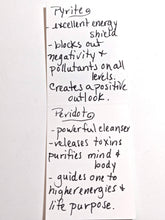 Pyrite
- excellent energy
shield
- blocks out
negativity &
pollutants on all
levels.
Creates a positive
outlook.
Peridot
- powerful cleanser
- releases toxins
purifies mind &
body
- guides one to
higher energies &
life purpose.